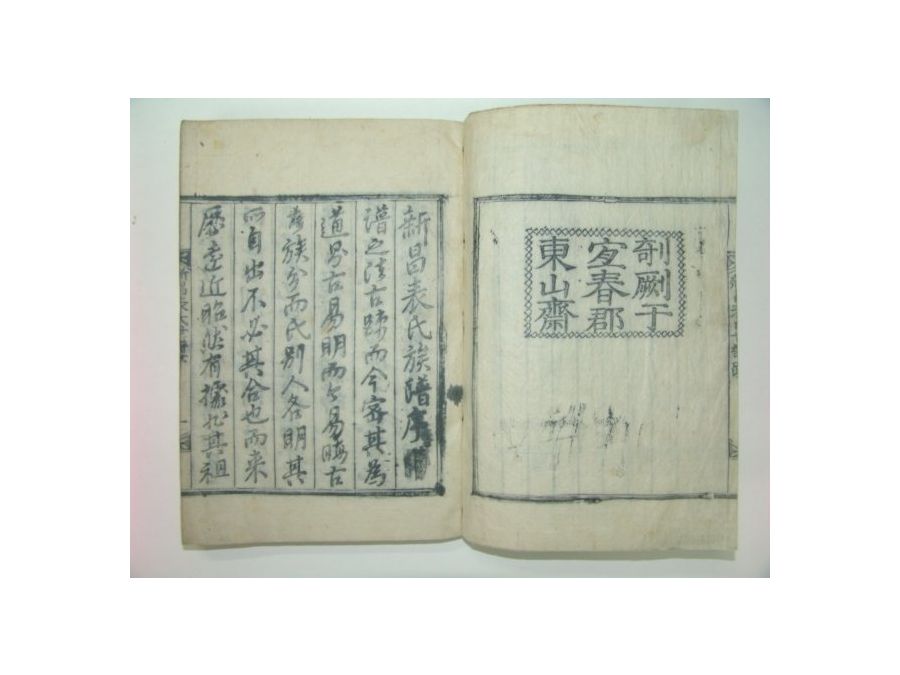 剞劂于
宜春郡
東山齋
新昌表氏族譜序
譜之法古踈而今密其為
道易古易明而今易晦古
者族分而氏別人各明其
所自出不必其合也而来
歷遠近昭然有據於其祖